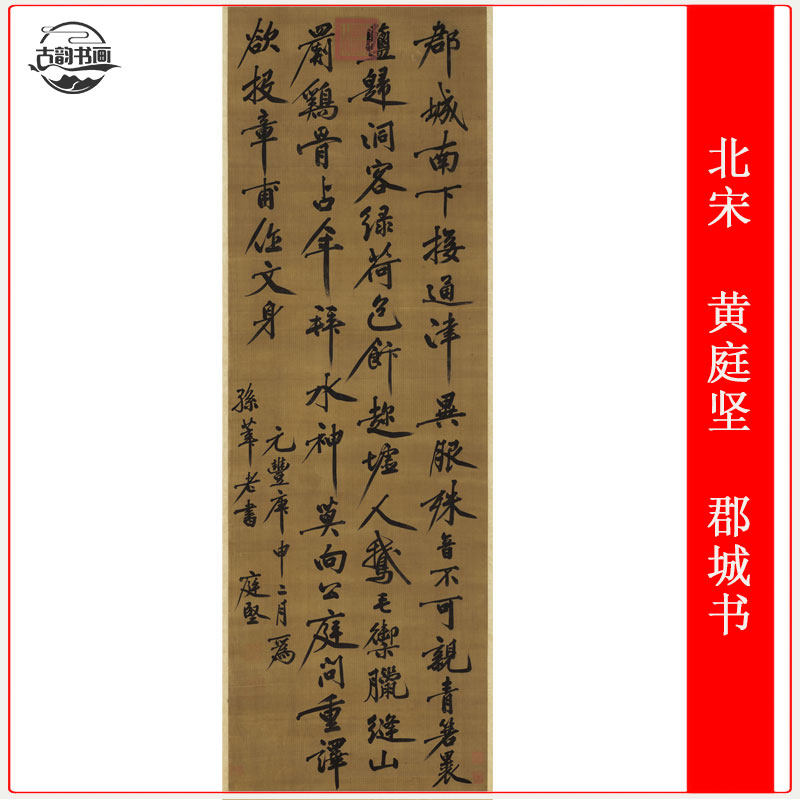 古韵书画
郡城南下接通津異服殊音不可親青箬裹
鹽歸洞客緑荷包飰趂墟人鵝毛禦臘縫山
罽鷄骨占年拜水神莫向公庭問重譯
欲投章甫作文身
元豐庚申二月為
孫莘老書 庭堅
北宋 黄庭坚 郡城书